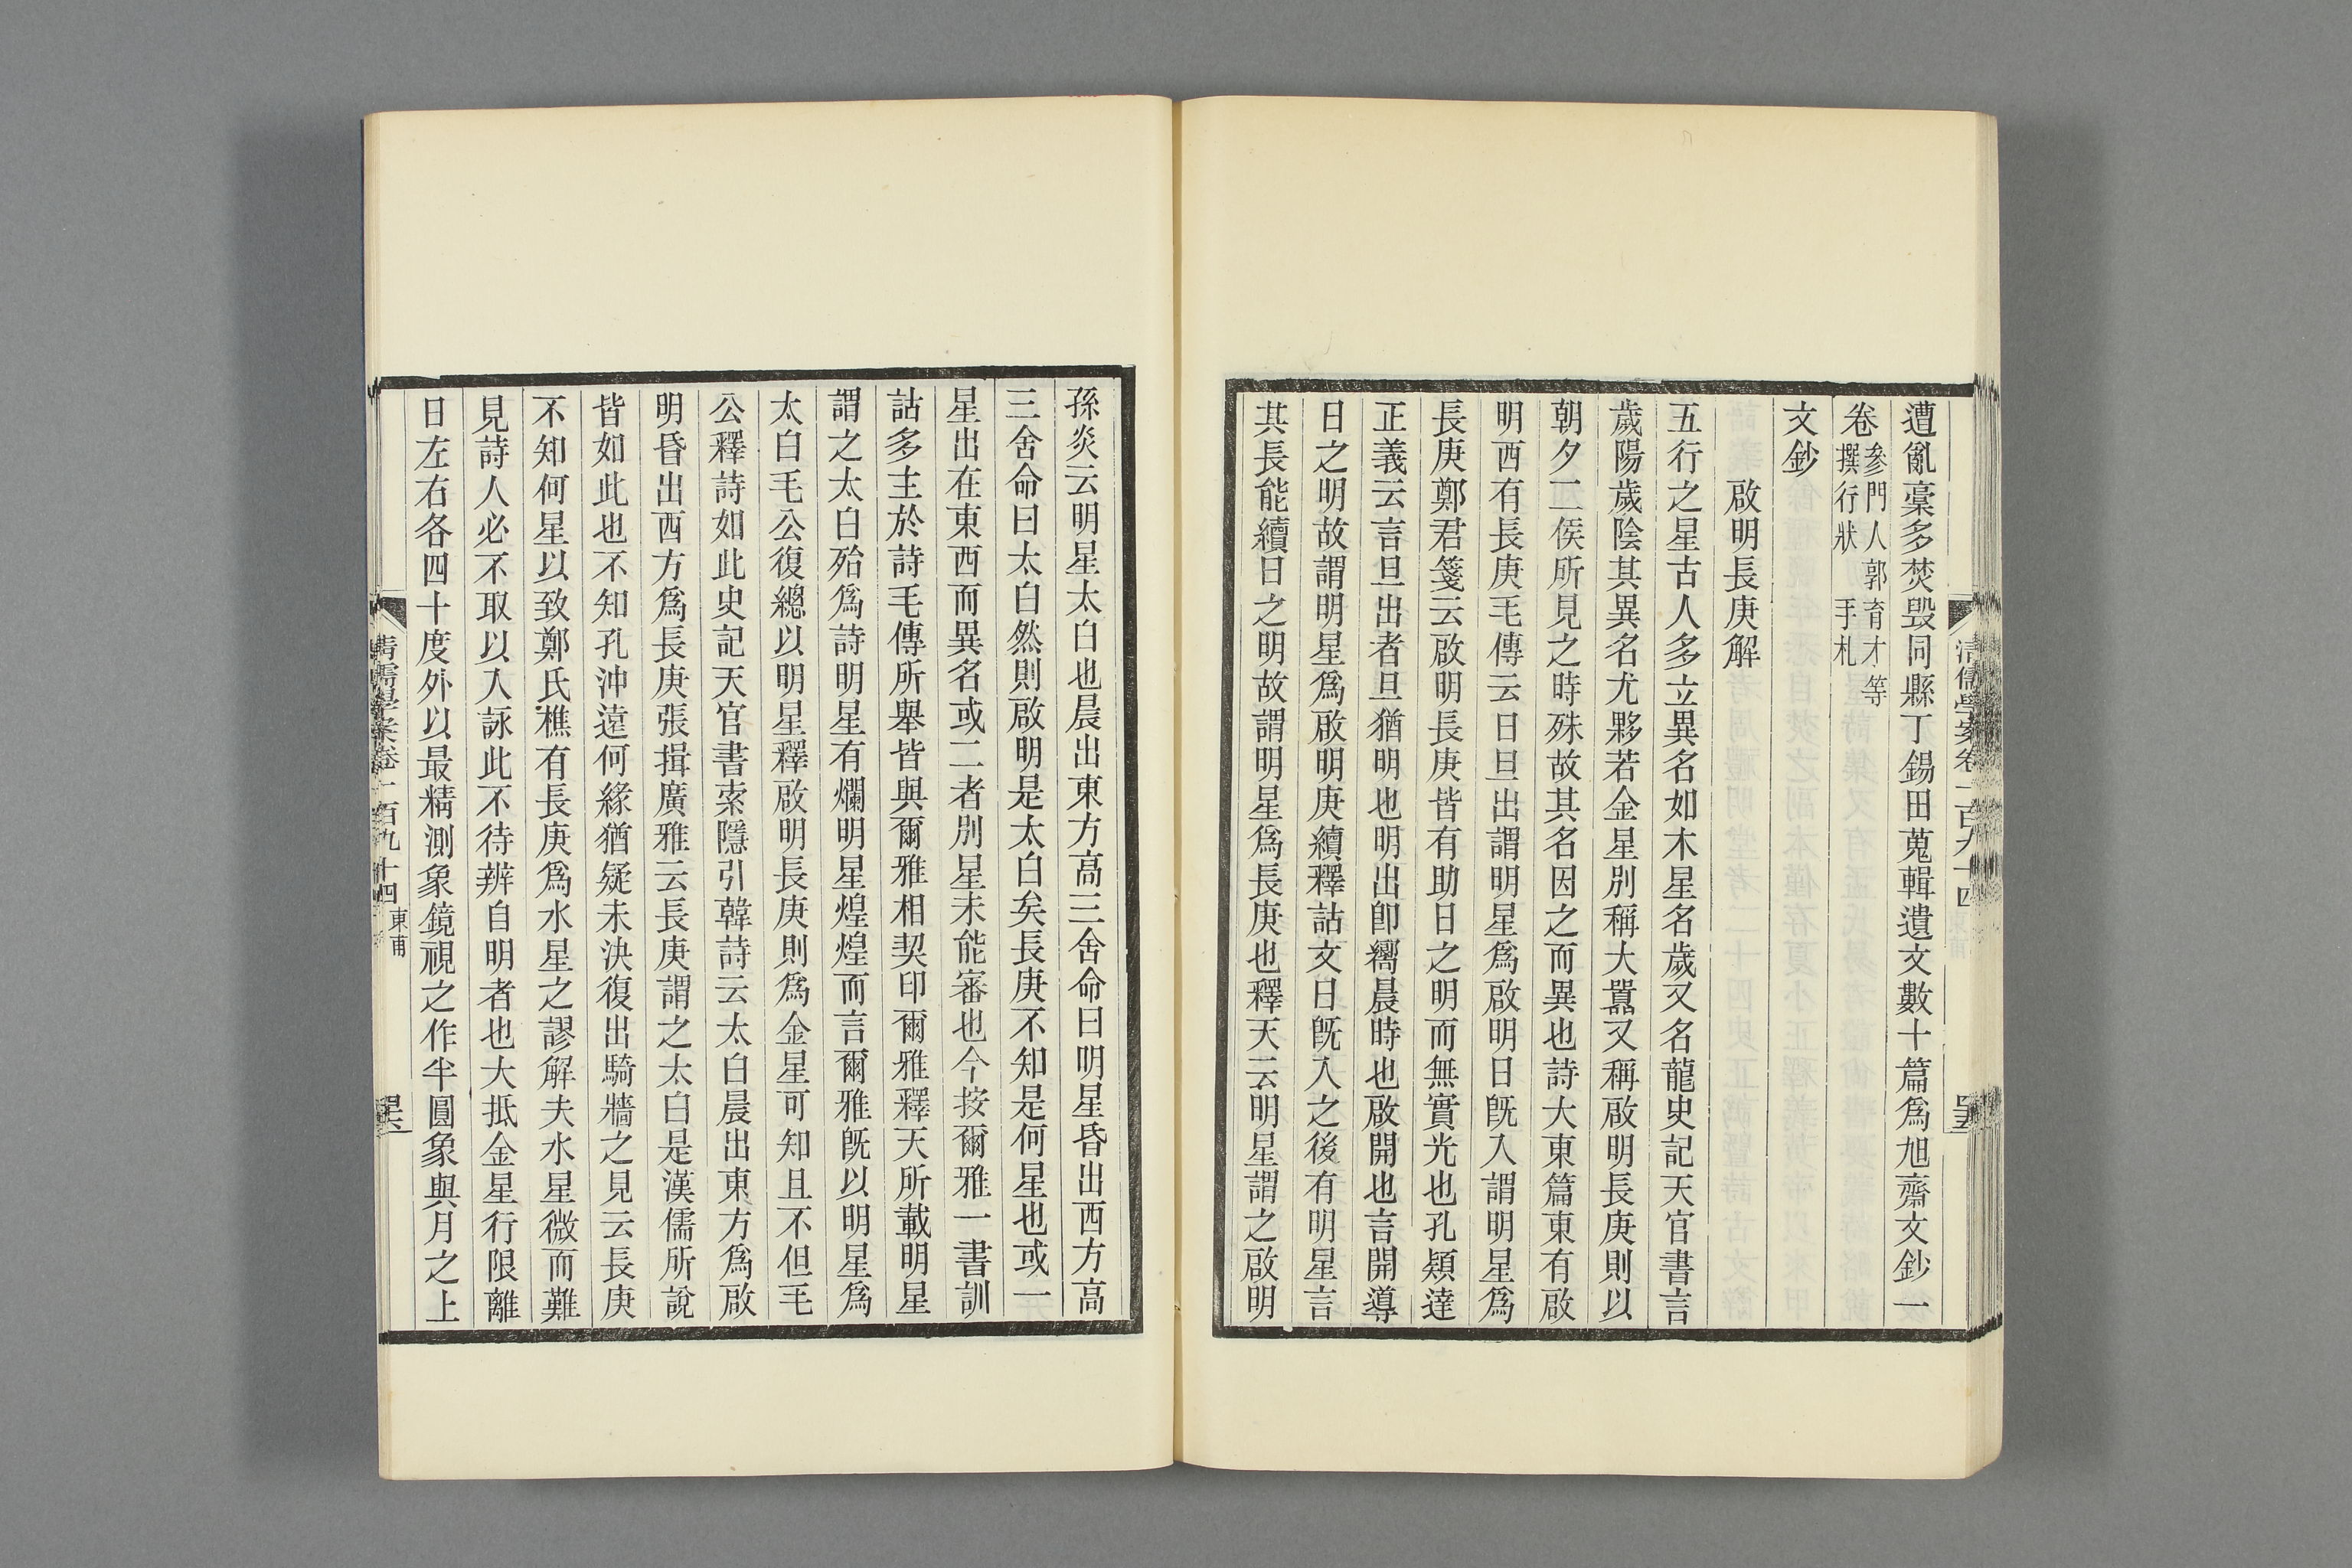 遭亂稾多焚毀同縣丁錫田蒐輯遺文數十篇爲旭齋文鈔一
卷參門人郭育才等撰行狀手札
文鈔
啟明長庚解
五行之星古人多立異名如木星名歲又名龍史記天官書言
歲陽歲陰其異名尤夥若金星別稱大囂又稱啟明長庚則以
朝夕二候所見之時殊故其名因之而異也詩大東篇東有啟
明西有長庚毛傳云日旦出謂明星爲啟明日旣入謂明星爲
長庚鄭君箋云啟明長庚皆有助日之明而無實光也孔穎達
正義云言旦出者旦猶明也明出卽嚮晨時也啟開也言開導
日之明故謂明星爲啟明庚續釋詁文日旣入之後有明星言
其長能續日之明故謂明星爲長庚也釋天云明星謂之啟明
孫炎云明星太白也晨出東方高三舍命曰明星昏出西方高
三舍命曰太白然則啟明是太白矣長庚不知是何星也或一
星出在東西而異名或二者別星未能審也今按爾雅一書訓
詁多主於詩毛傳所舉皆與爾雅相契印爾雅釋天所載明星
謂之太白殆爲詩明星有爛明星煌煌而言爾雅旣以明星爲
太白毛公復總以明星釋啟明長庚則爲金星可知且不但毛
公釋詩如此史記天官書索隱引韓詩云太白晨出東方爲啟
明昏出西方爲長庚張揖廣雅云長庚謂之太白是漢儒所說
皆如此也不知孔沖遠何緣猶疑未決復出騎牆之見云長庚
不知何星以致鄭氏樵有長庚爲水星之謬解夫水星微而難
見詩人必不取以入詠此不待辨自明者也大抵金星行限離
日左右各四十度外以最精測象鏡視之作半圓象與月之上
清儒學案卷一百九十四 東甫